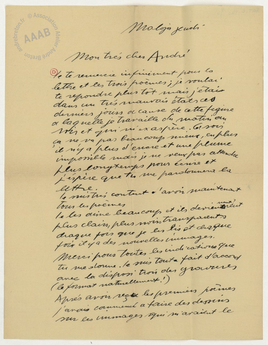 AAAB
Maloja jeudi
Mon très cher André
Je te remercie infiniment pour la
lettre et les trois poèmes, je voulais
te répondre plus tôt mais j'étais
dans un très mauvais état ces
derniers jours à cause de cette figure
à laquelle je travaille du matin au
soir et qui m'exaspère, le soir
ça ne va pas beaucoup mieux, en plus
il n'y a plus d'encre et une plume
impossible mais je ne veux pas attendre
plus longtemps pour écrire et
j'espère que tu me pardonneras la
lettre.
Je suis très content d'avoir maintenant
tous les poèmes
Je les aime beaucoup et ils deviennent
plus clairs, plus transparents
chaque fois que je les lis et chaque
fois il y a des nouvelles images.
Merci pour toutes les indications que
tu me donnes. Je suis tout à fait d'accord
avec la disposition des gravures
(le format naturellement!)
Après avoir reçu les premiers poèmes
j'avais commencé à faire des dessins
sur les images qui m'avaient le